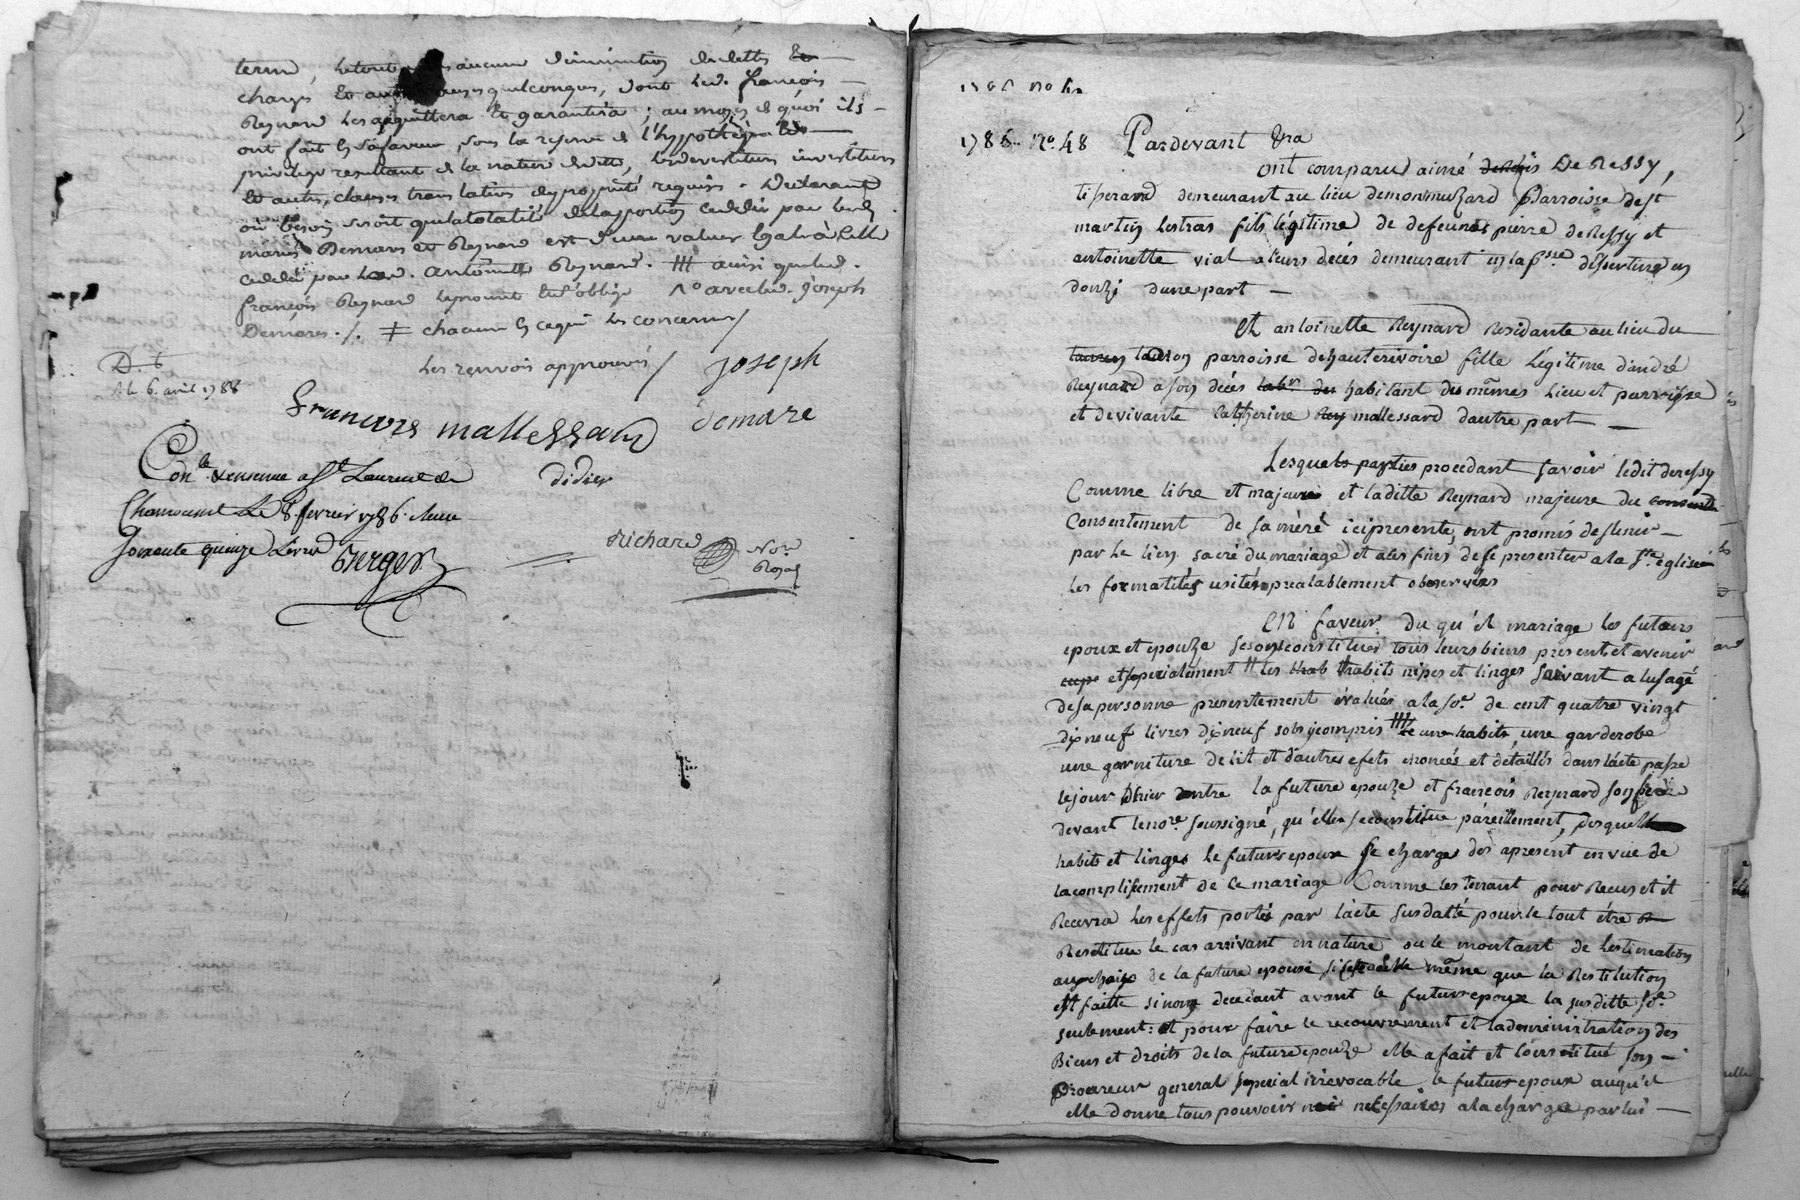 charges et autres causes quelconques, dont led. françois
Reynard les acquittera et garantira ; au moyen de quoi ils
ont fait en sa faveur, sous la reserve de l'hypothèque et
privilege resultant de la nature
et autres clauses translatives de propriété requises. Declarant
mariés Demare et Reynard est d'une valeur egale à celle
cedée par lad. antoinette Reynard. ainsi que led.
françois Reynard le promet et s'oblige Joseph
Demare ./. ‡ chacun en ce qui les concerne /
Les renvois approuvés / joseph
D. t
le 6. avril 1788
francois mallessard demare
Con.le
didier
Chamousset Le 8 fevrier 1786. Reçu
soixante quinze Livres Berger
Richard Nore
Royal
1786 no 4
1786. No. 48 Pardevant &ra
ont comparu aimé De Ressy,
tisserand demeurant au lieu de Parroisse de st
martin lestras fils légitime de defeunts pierre deRessy et
antoinette vial a leurs décés demeurant en la psse d'Essertine en
donzi d'une part —
Et antoinette Reynard Residante au lieu du
parroisse de hauterivoire fille Légitime d'andré
Reynard a son décés habitant du mêmes lieu et parroisse
et de vivante catherine mallessard d'autre part —
Lesquels parties procedant savoir ledit deressy
Comme libre et majeur et laditte Reynard majeure du
Consentement de sa mére ici presente ont promis de s'unir —
par le lien sacré du mariage et a les fins de se presenter a la Ste eglise
les formalités usitées prealablement observées
En faveur du qu'el mariage les futurs
epoux et epouze se sont constitués tous leurs biens present et avenir
et specialement les habits nipes et linges servant a l'usage
de sa personne presentement évalués a la so.e de cent quatre vingt
Dixneuf livres dixneuf sols y compris une garderobe
une garniture de lit et d'autres efets enoncés et détaillés dans l'acte passé
le jour d'hier entre la future epouze et francois Reynard son frere
devant le nore soussigné, qu'elle se constitue pareillement, desquels
habits et linges le futur epoux se charge dès apresent en vue de
l'acomplissement de ce mariage Comme les tenant pour Recus et il
Recevra les effets portés par l'acte susdatté pour le tout être
Restitue le cas arrivant en nature ou le montant de l'estimation
au choix de la future epouse si c'est a elle même que la Restitution
est faitte sinon decedant avant le futur epoux la susditte so.e
seulement : et pour faire le recouvrement et l'administration des
Biens et droits de la future epouze elle a fait et constitué son —
Procureur general special irrevocable le futur epoux auqu'el
elle donne tous pouvoir necessaires a la charge par lui —